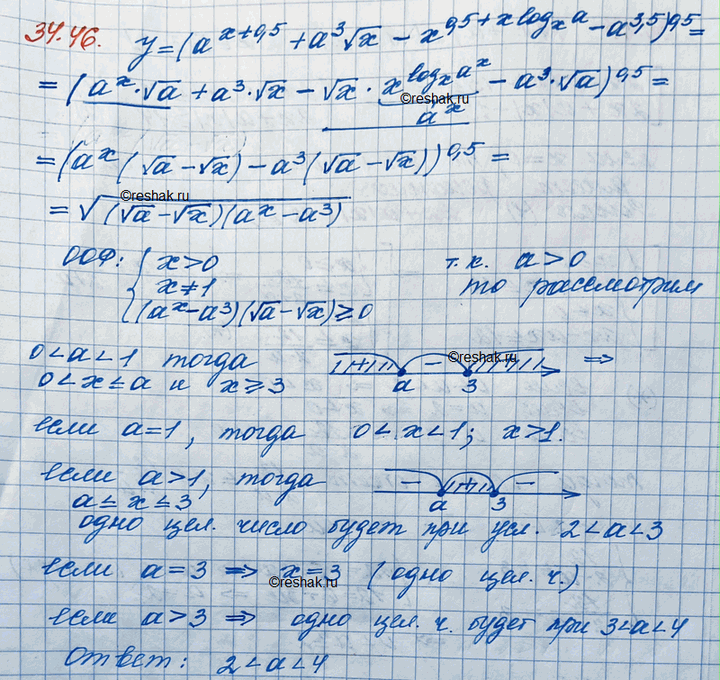 34.46. y = (a^{x+0,5} + a^3√x − x^{0,5 + x log_x a} − a^{3,5})^{0,5} =
= (a^x · √a + a^3 · √x − √x · x^{log_x a^x} − a^3 · √a)^{0,5} =
©reshak.ru
a^x
= (a^x (√a − √x) − a^3 (√a − √x))^{0,5} =
©reshak.ru
= √((√a − √x)(a^x − a^3))
ООФ: { x > 0 т.к. a > 0
x ≠ 1 то рассмотрим
(a^x − a^3)(√a − √x) ≥ 0
0 < a < 1 тогда + − ©reshak.ru + ⇒
0 < x ≤ a и x ≥ 3 a 3
если a = 1, тогда 0 < x < 1; x > 1.
если a > 1, тогда − + −
a ≤ x ≤ 3 a 3
одно цел. число будет при усл. 2 < a < 3
если a = 3 ⇒ x = 3 (одно цел. ч.)
©reshak.ru
если a > 3 ⇒ одно цел. ч. будет при 3 < a < 4
Ответ: 2 < a < 4